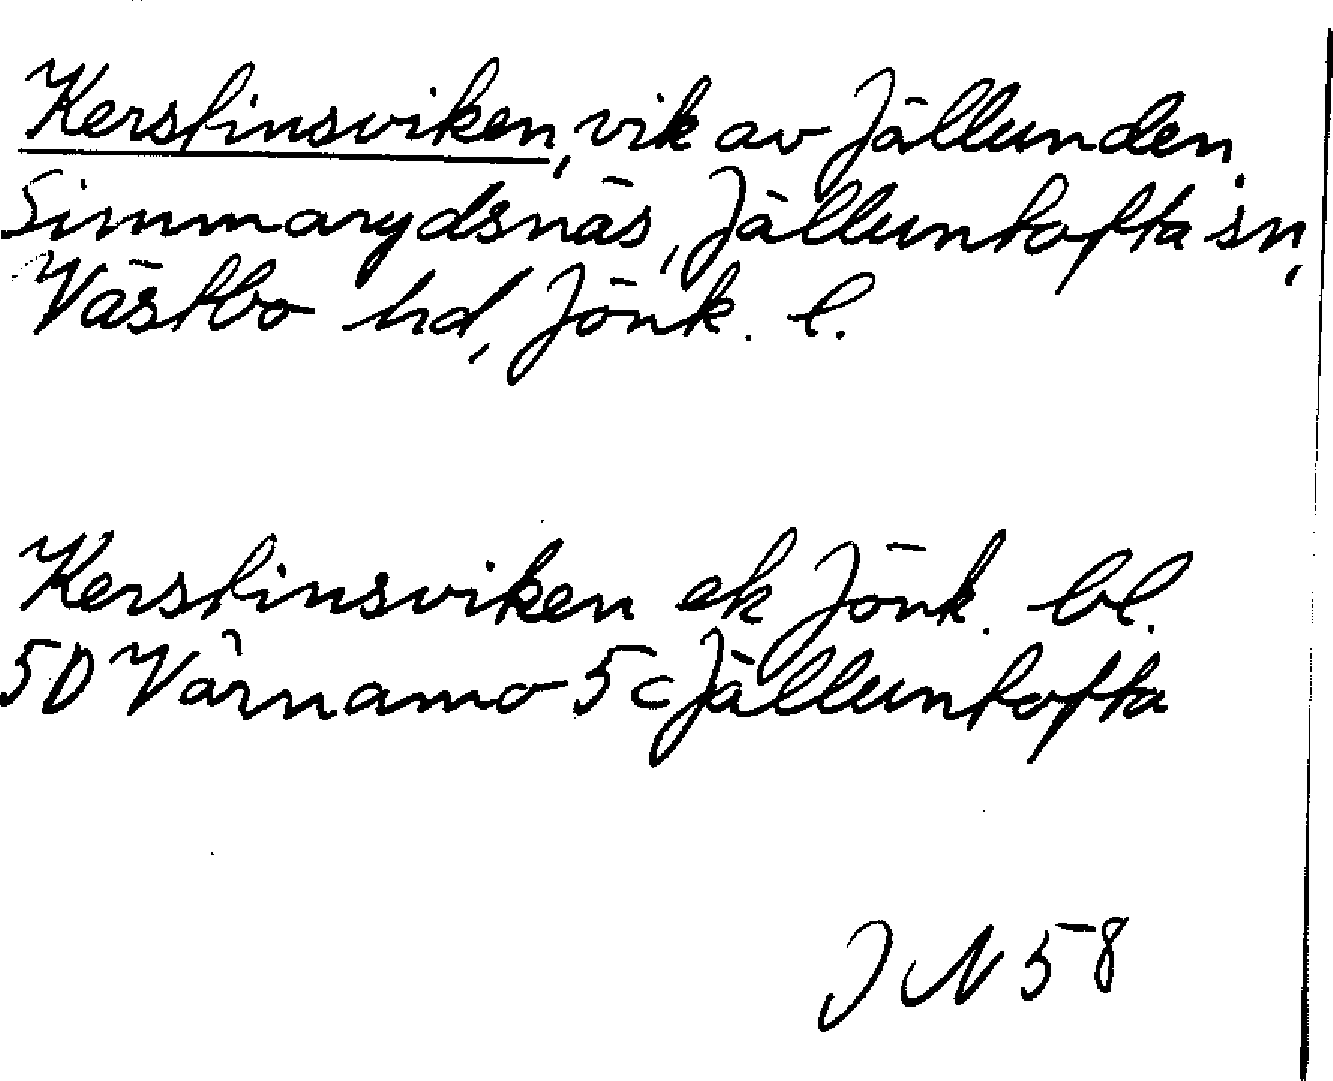 Kerstinsviken, vik av Jällunden,
Simmarydsnäs, Jälluntofta sn,
Västbo hd, Jönk. l.
Kerstinsviken ek Jönk. bl.
5D Värnamo 5c Jälluntofta
JN 58